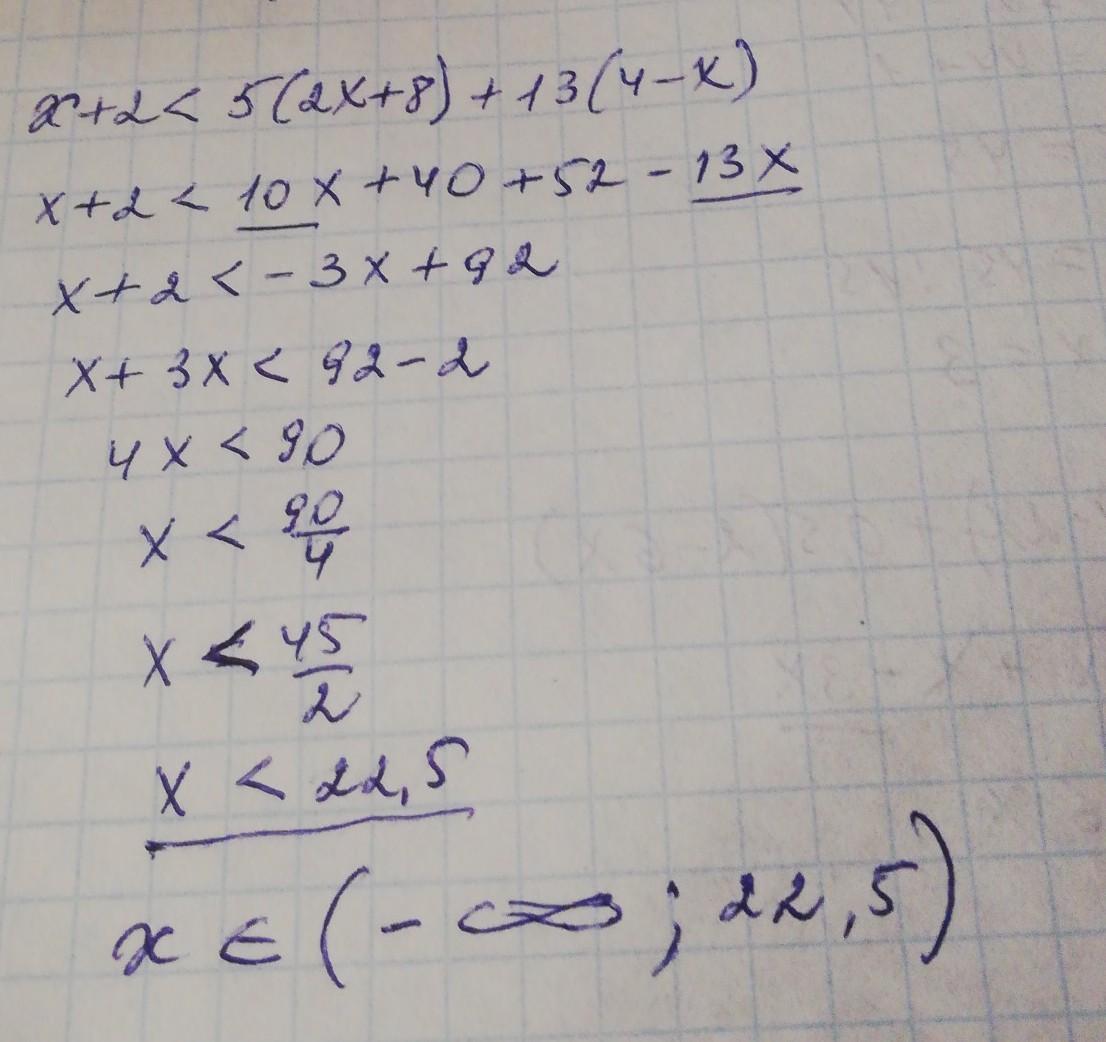 x+2 < 5(2x+8)+13(4-x)
x+2 < 10x+40+52-13x
x+2 < -3x+92
x+3x < 92-2
4x < 90
x < 90/4
x < 45/2
x < 22,5
x ∈ (-∞; 22,5)